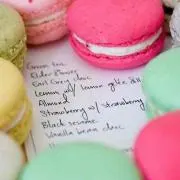 Green tea
Elder flower
Earl Grey choc
Lemon w/ lemon
Almond
Strawberry w/ strawberry
Black sesame
Vanilla bean choc